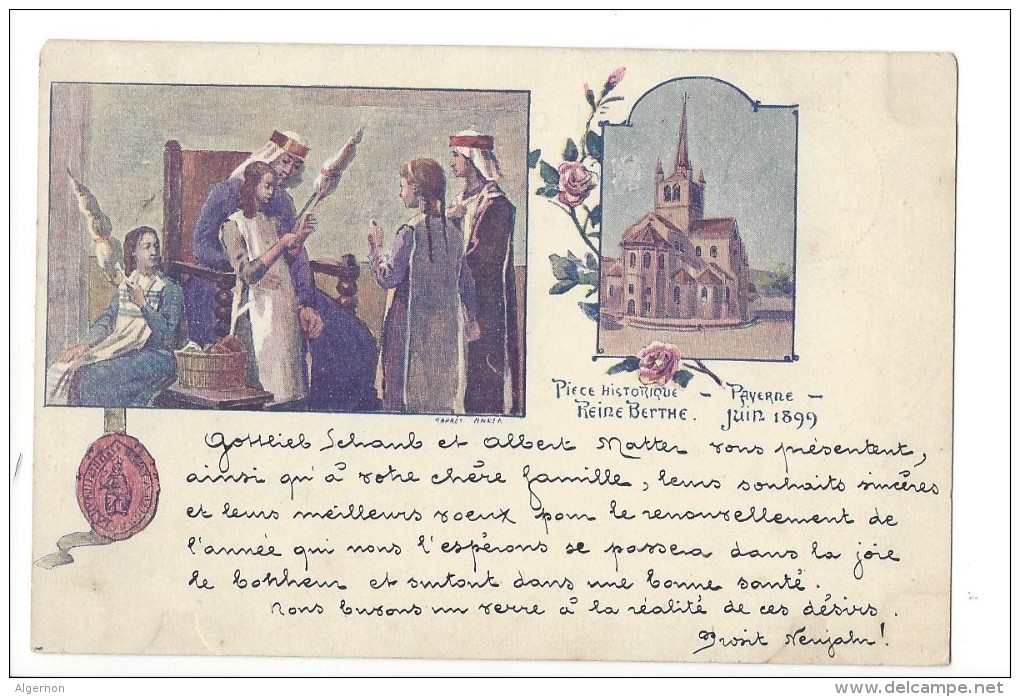 D'APRÈS ANKER
PIECE HISTORIQUE - PAYERNE -
REINE BERTHE. JUIN 1899
Gottlieb Schaub et Albert Matter vous présentent,
ainsi qu'à votre chère famille, leurs souhaits sincères
et leurs meilleurs voeux pour le renouvellement de
l'année qui nous l'espérons se passera dans la joie
le bonheur et surtout dans une bonne santé.
Nous buvons un verre à la réalité de ces désirs.
Prosit Neujahr!
Algernon
www.delcampe.net